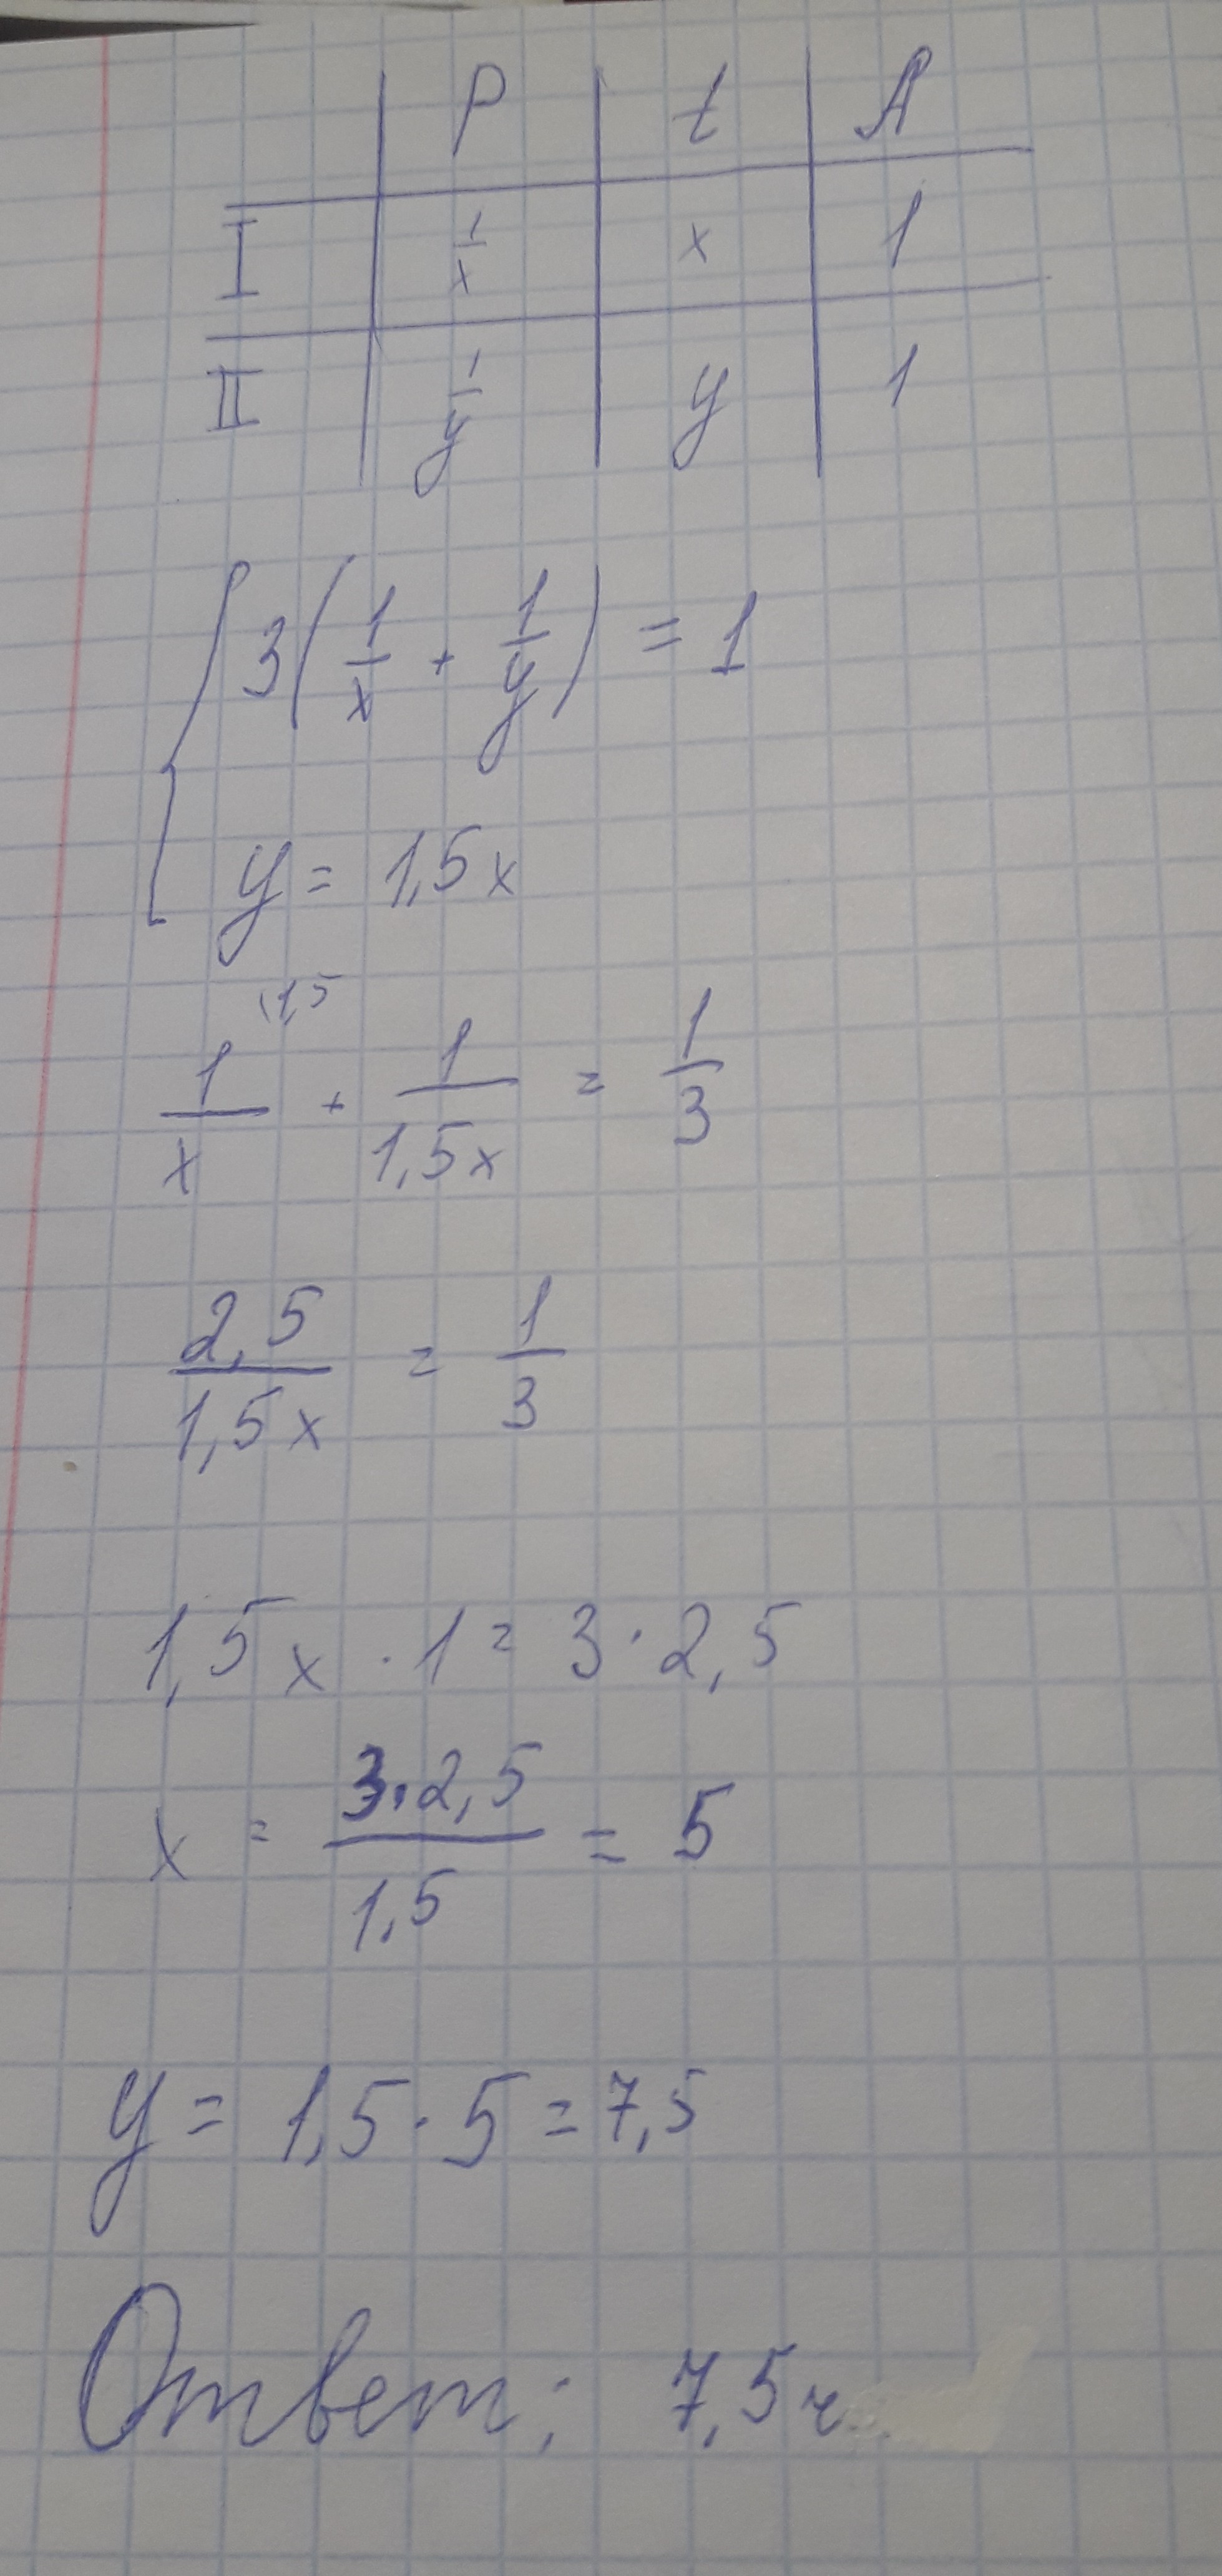 P t A
I 1/x x 1
II 1/y y 1
{ 3(1/x + 1/y) = 1
y = 1,5x
\1,5
1/x + 1/1,5x = 1/3
2,5/1,5x = 1/3
1,5x · 1 = 3 · 2,5
x = 3·2,5/1,5 = 5
y = 1,5 · 5 = 7,5
Ответ: 7,5 ч